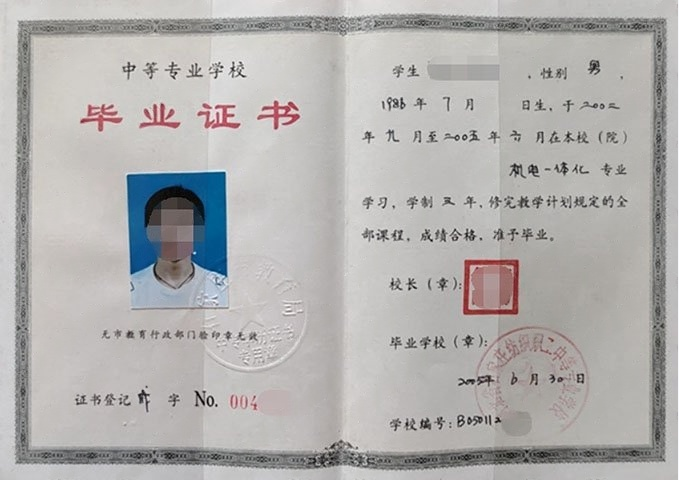 中等专业学校
毕业证书
无市教育行政部门验印章无效
证书登记 字 No. 004
学生 ，性别 男 ，
1986 年 7 月 日生，于 二00二
年 九 月至 二00五 年 六 月在本校（院）
机电一体化 专业
学习，学制 三 年，修完教学计划规定的全
部课程，成绩合格，准予毕业。
校长（章）：
毕业学校（章）：
2005年 6 月 30 日
学校编号：B050112